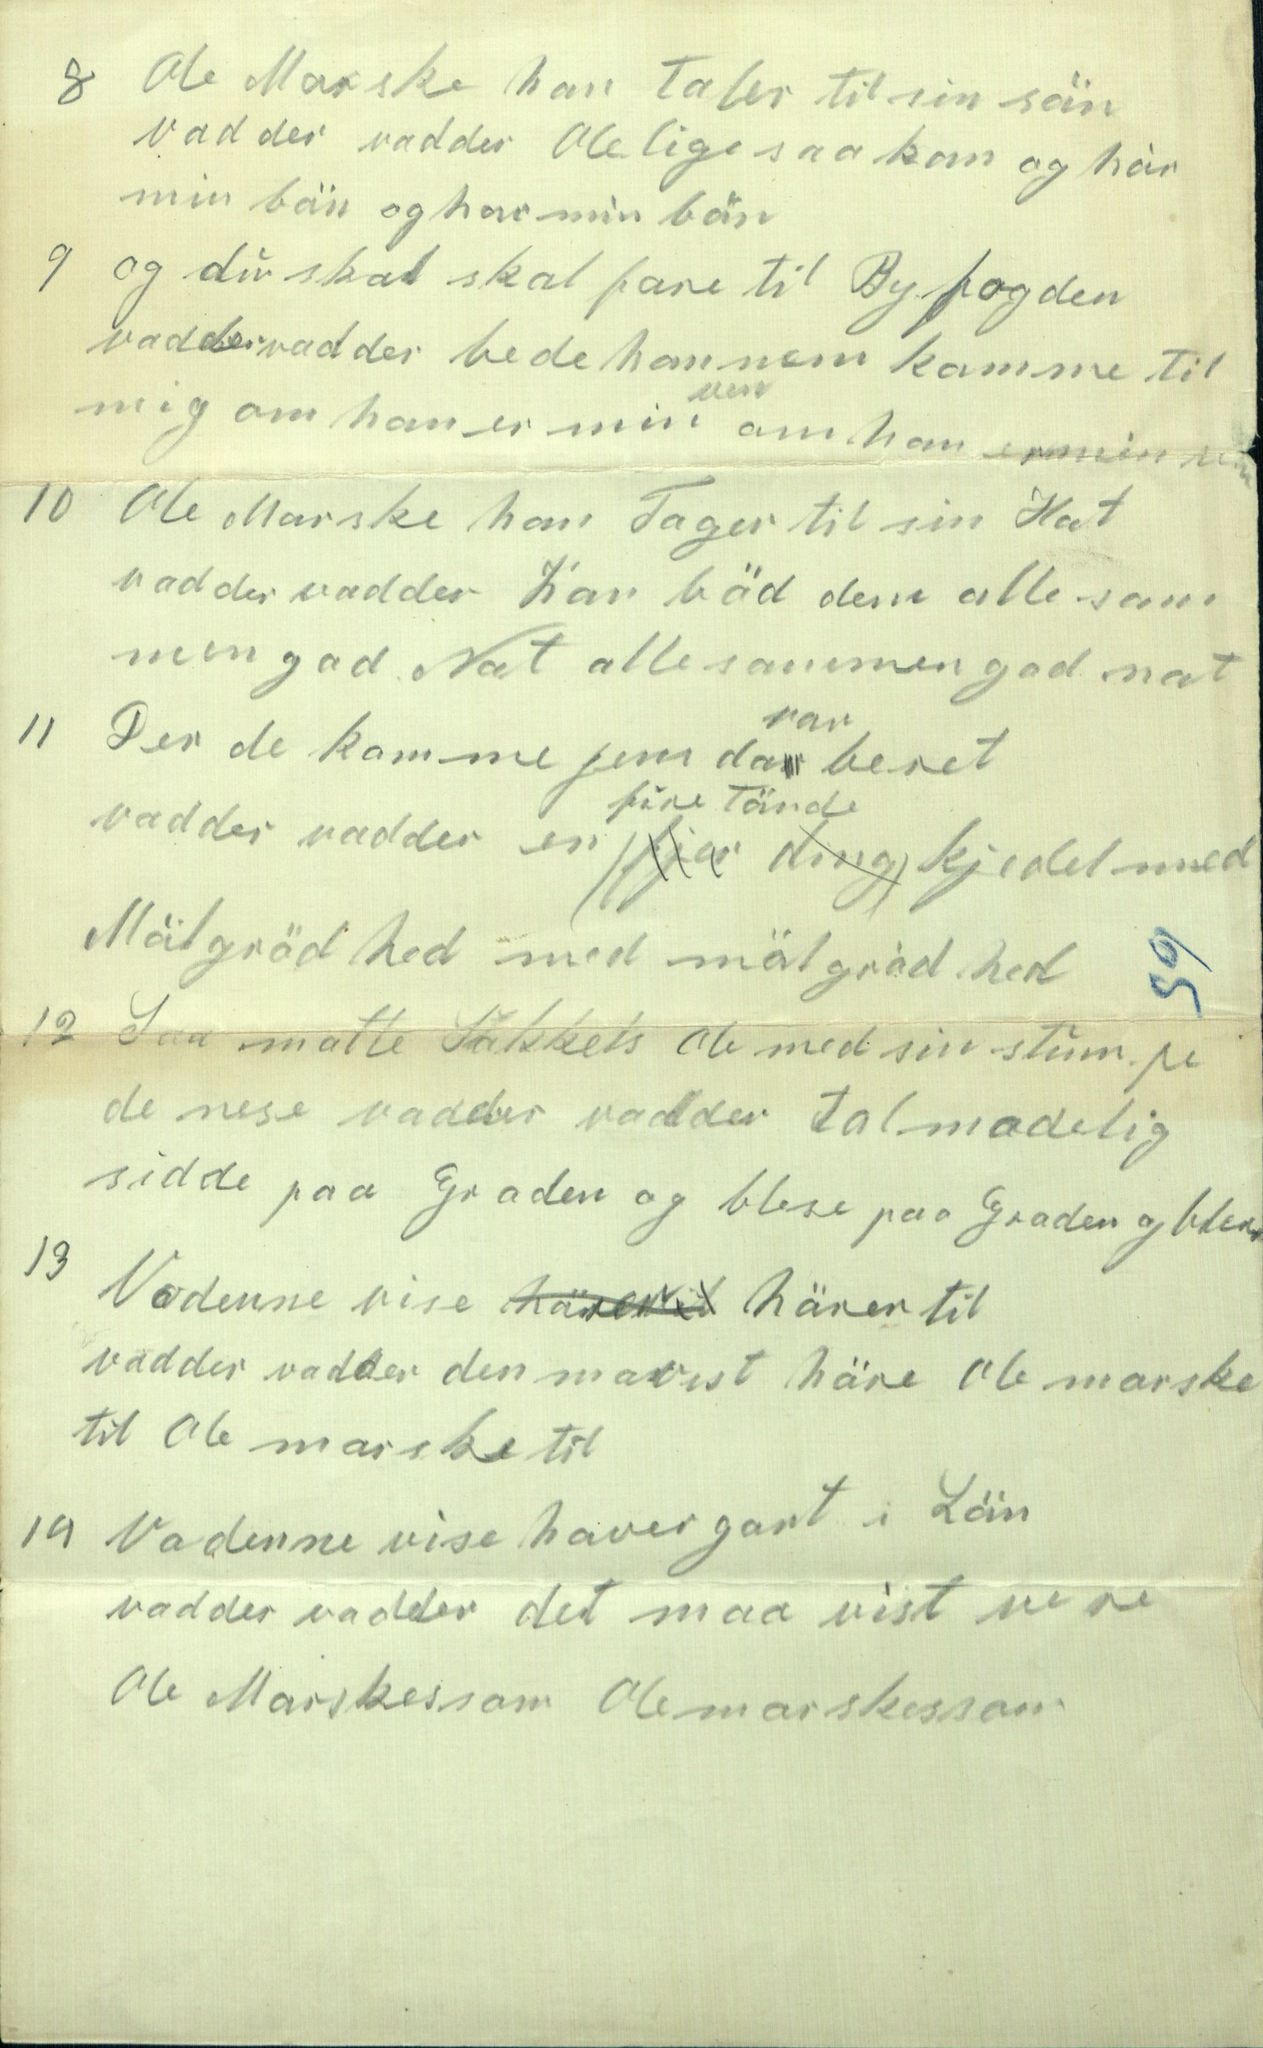 8 Ole Marske han taler til sin sön
vadder vadder Ole lige saa kom og hör
min bön og hör min bön
9 og dŭ skal skal fare til By fogden
vadder vadder bede hannem komme til
mig om han er min ven om han er min ven
10 Ole Marske han Tager til sin Hat
vadder vadder han böd dem alle sam
men god Nat alle sammen god nat
11 Der de komme jem da var beret
vadder vadder en (fjor ding) fire Tönde kjedel med
Mölgröd hed med mölgröd hed
12 Saa motte Säkkels Ole med sin stŭmpe
de nese vadder vadder tolmodelig
sidde paa Gröden og blese paa Gröden og blese
59
13 Vodenne vise hörer til hörer til
vadder vadder den mavist höre Ole marske
til Ole marske til
14 Vadenne vise haver gort i Lön
vadder vadder det maa vist vere
Ole Marskes som Ole marskes som